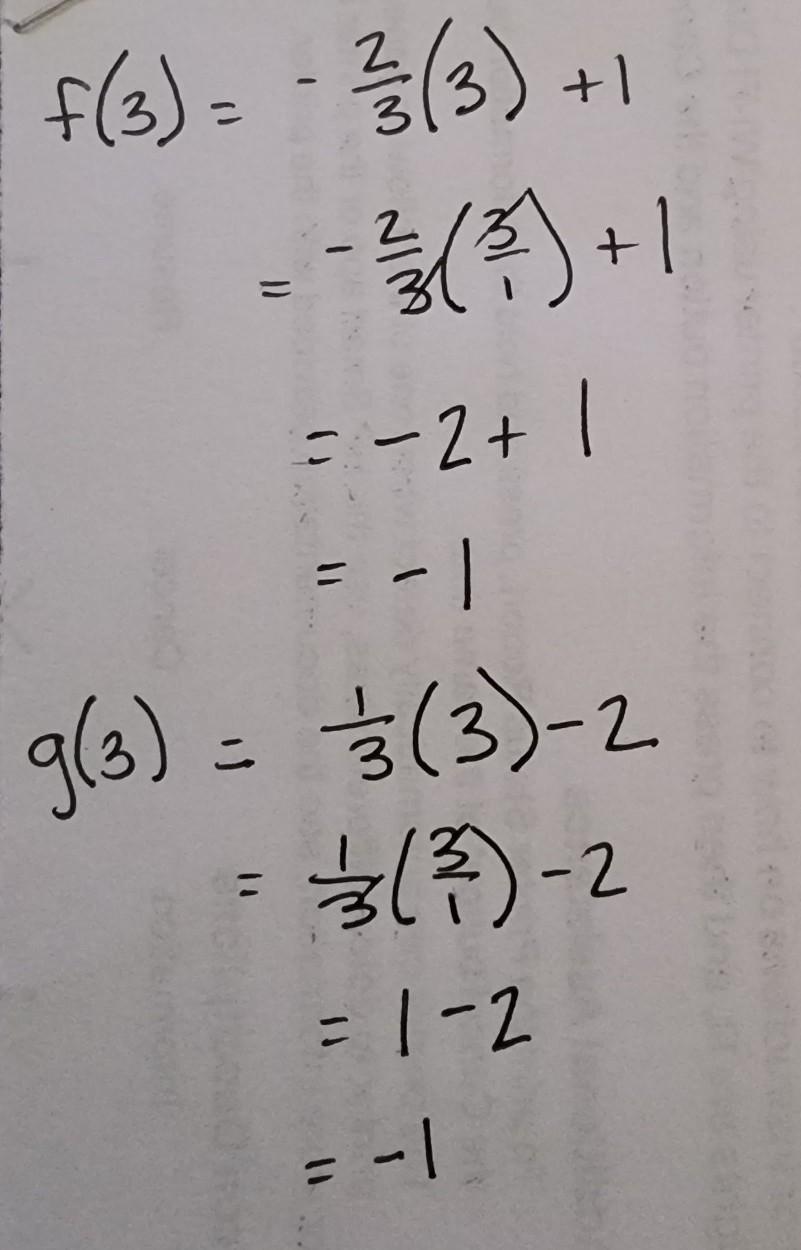 f(3) = -2/3(3) +1
= -2/3(3/1) +1
= -2+ 1
= -1
g(3) = 1/3(3)-2
= 1/3(3/1)-2
= 1-2
= -1